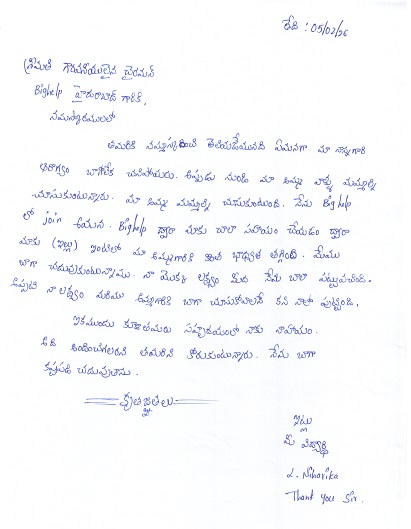 తేది : 05/02/26
శ్రీమతి గౌరవనీయులైన చైర్మన్
Bighelp హైదరాబాద్ గారికి,
నమస్కారములలో
తమరికి నమస్కరించి తెలియజేయునది ఏమనగా మా నాన్నగారి
ఆరోగ్యం బాగలేక చనిపోయారు. అప్పుడు నుండి మా అమ్మ వాళ్ళు మమ్మల్ని
చూసుకుంటున్నారు. మా అమ్మ మమ్మల్ని చూసుకుంటుంది. నేను Big help
లో join అయిన. Bighelp ద్వారా మాకు చాలా సహాయం చేయడం ద్వారా
మాకు (ఇల్లు) ఇంటిలో మా అమ్మగారికి కొంత బాధ్యత తగ్గింది. మేము
బాగా చదువుకుంటున్నాము. నా యొక్క లక్ష్యం మీద నేను చాలా
ఇప్పటి నా లక్ష్యం మరియు అమ్మగారికి బాగా చూసుకోవాలనే కసి నాలో పుట్టింది.
ఇకముందు కూడా తమరు సహృదయంలో నాకు సాహాయం
తమరిని కోరుకుంటున్నారు. నేను బాగా
కష్టపడి చదువుతాను.
కృతజ్ఞతలు
ఇట్లు
మీ విద్యార్థి
L. Niharika
Thank you Sir.